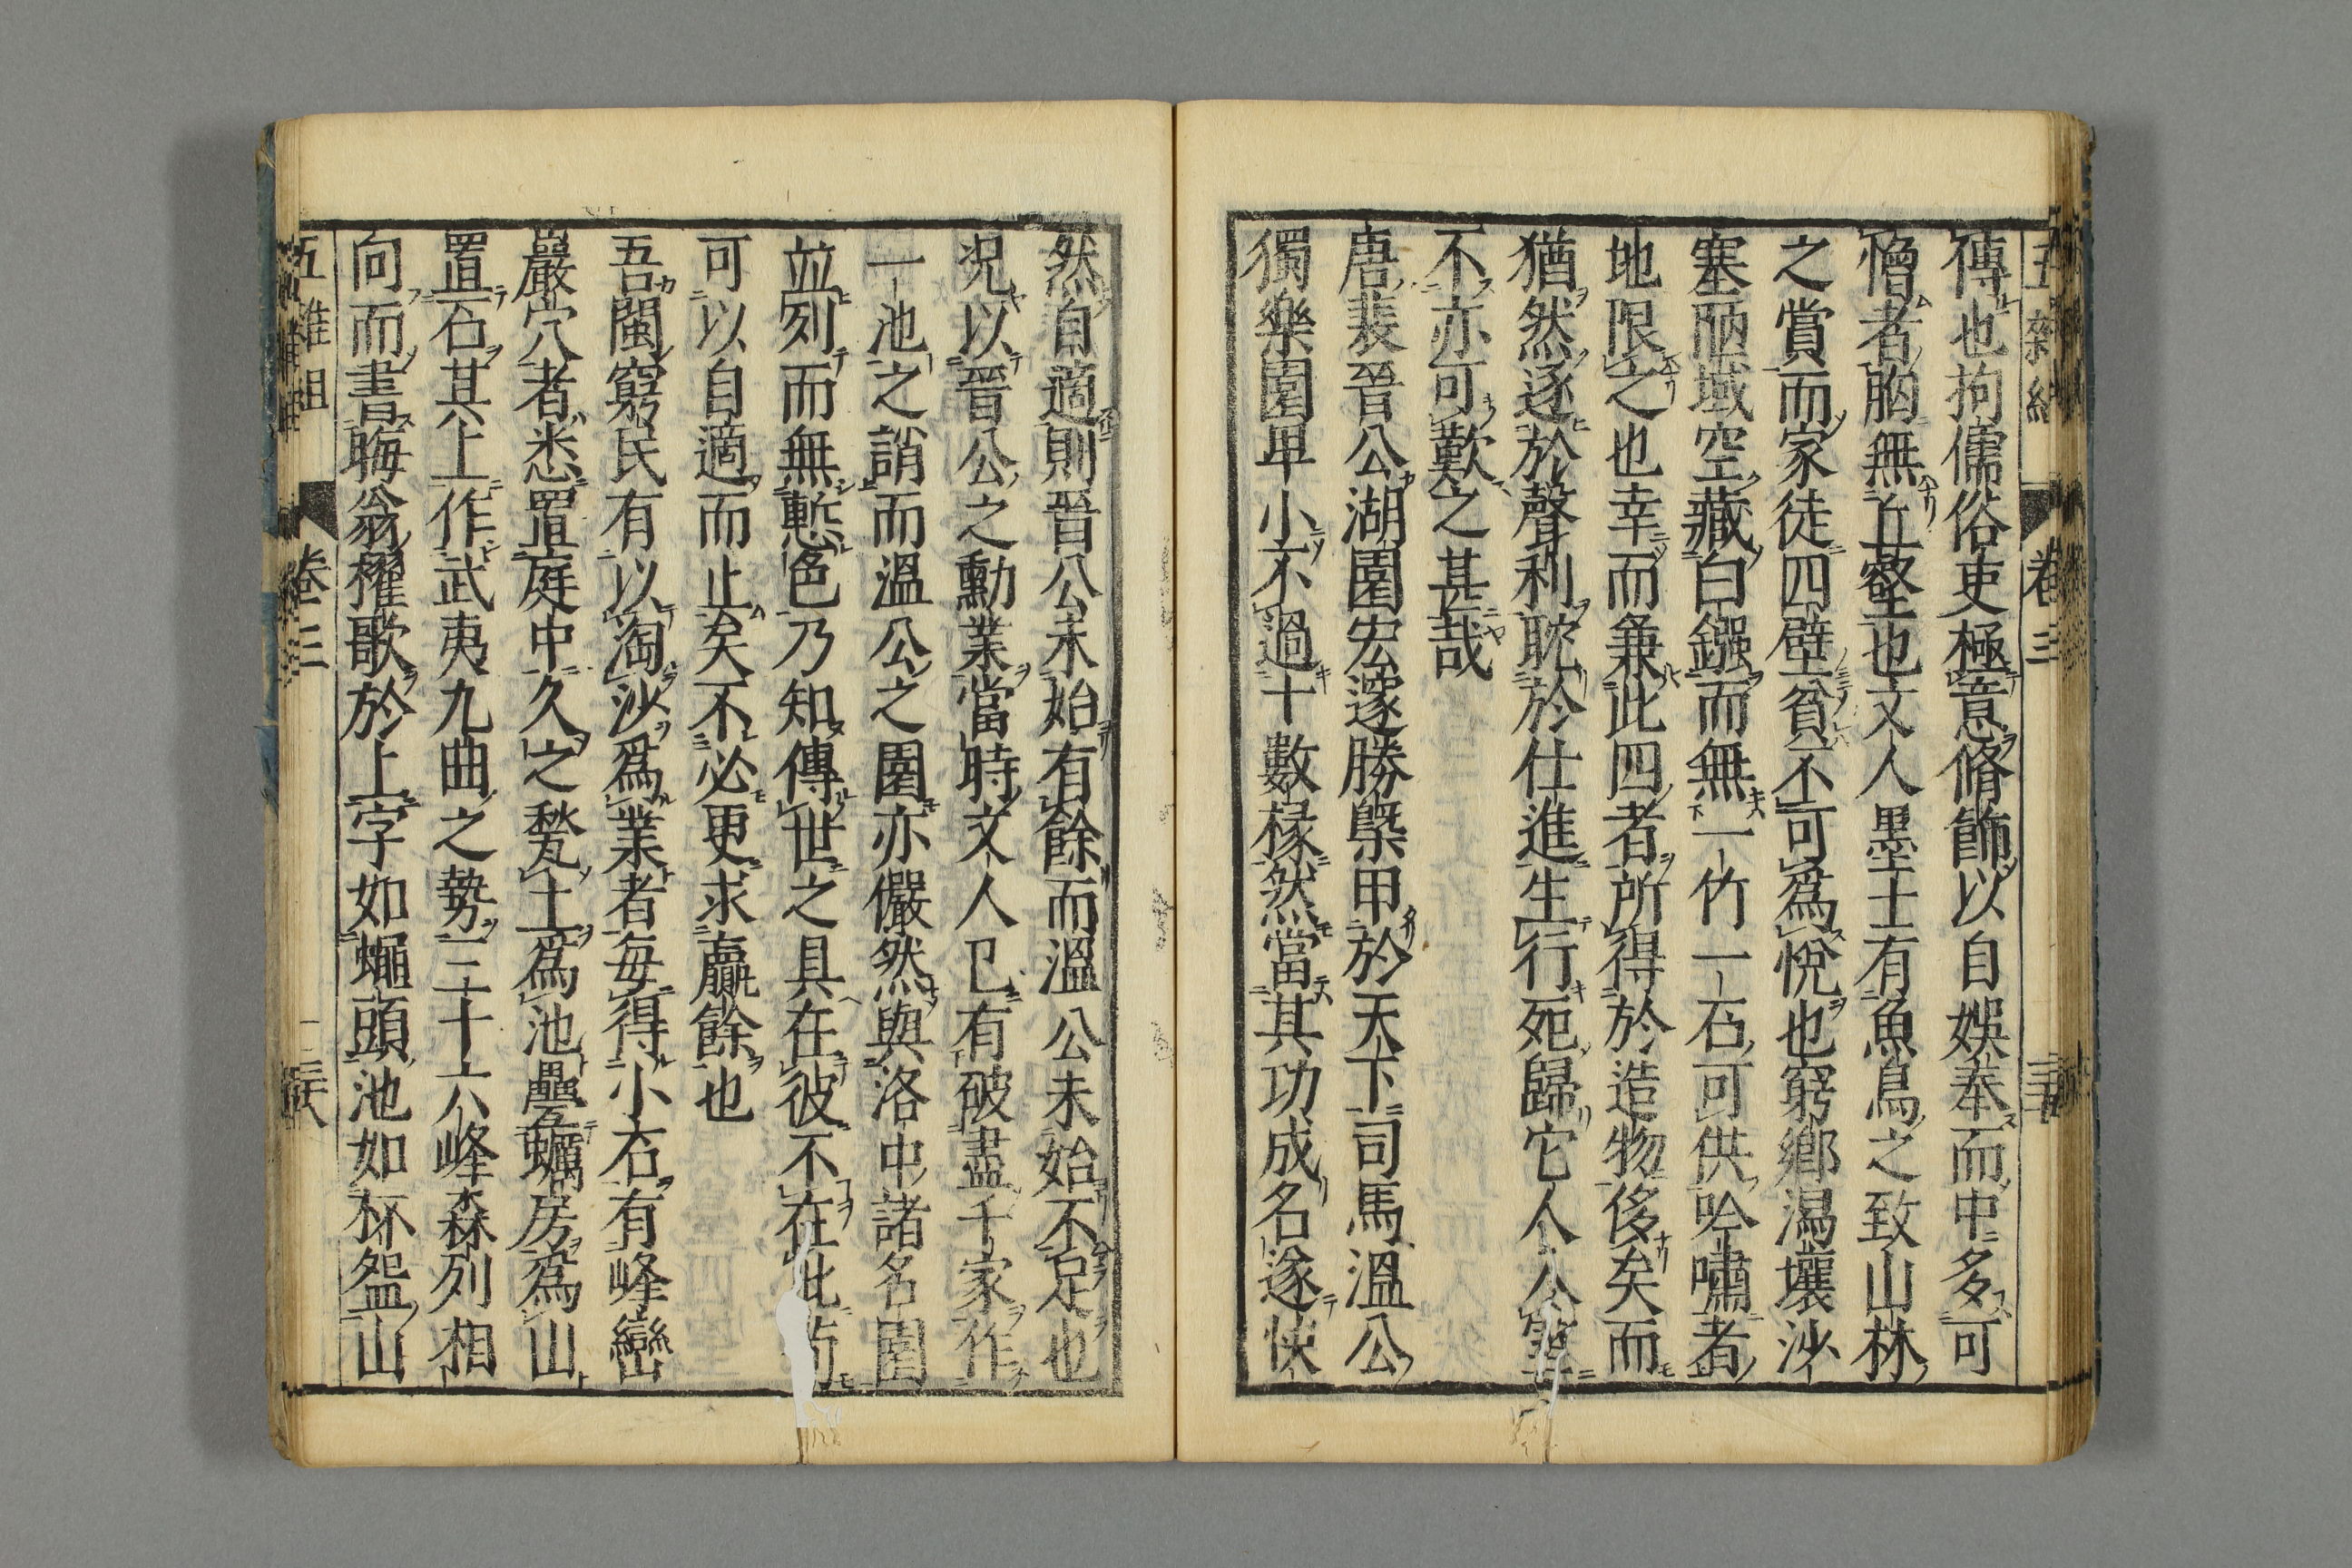 五雜組 卷三
傳也拘儒俗吏極意脩飾以自娛奉而中多可
憎者胸無丘壑也文人墨士有魚鳥之致山林
之賞而家徒四壁貧不可爲悅也窮鄉潟壤沙
塞陋域空藏白鏹而無一竹一石可供吟嘯者
地限之也幸而兼此四者所得於造物侈矣而
猶然逐於聲利耽於仕進生行死歸它人入室
不亦可歎之甚哉
唐裴晉公湖園宏邃勝槩甲於天下司馬溫公
獨樂園卑小不過十數椽然當其功成名遂快
然自適則晉公未始有餘而溫公未始不足也
況以晉公之勳業當時文人已有破盡千家作
一池之誚而溫公之園亦儼然與洛中諸名園
並列而無慙色乃知傳世之具在彼不在此苟
可以自適而止矣不必更求贏餘也
吾閩窮民有以淘沙爲業者每得小石有峰巒
巖穴者悉置庭中久之甃土爲池疊蠣房爲山
置石其上作武夷九曲之勢三十六峰森列相
向而書晦翁櫂歌於上字如蠅頭池如杯盌山
五雜組 卷三 三六